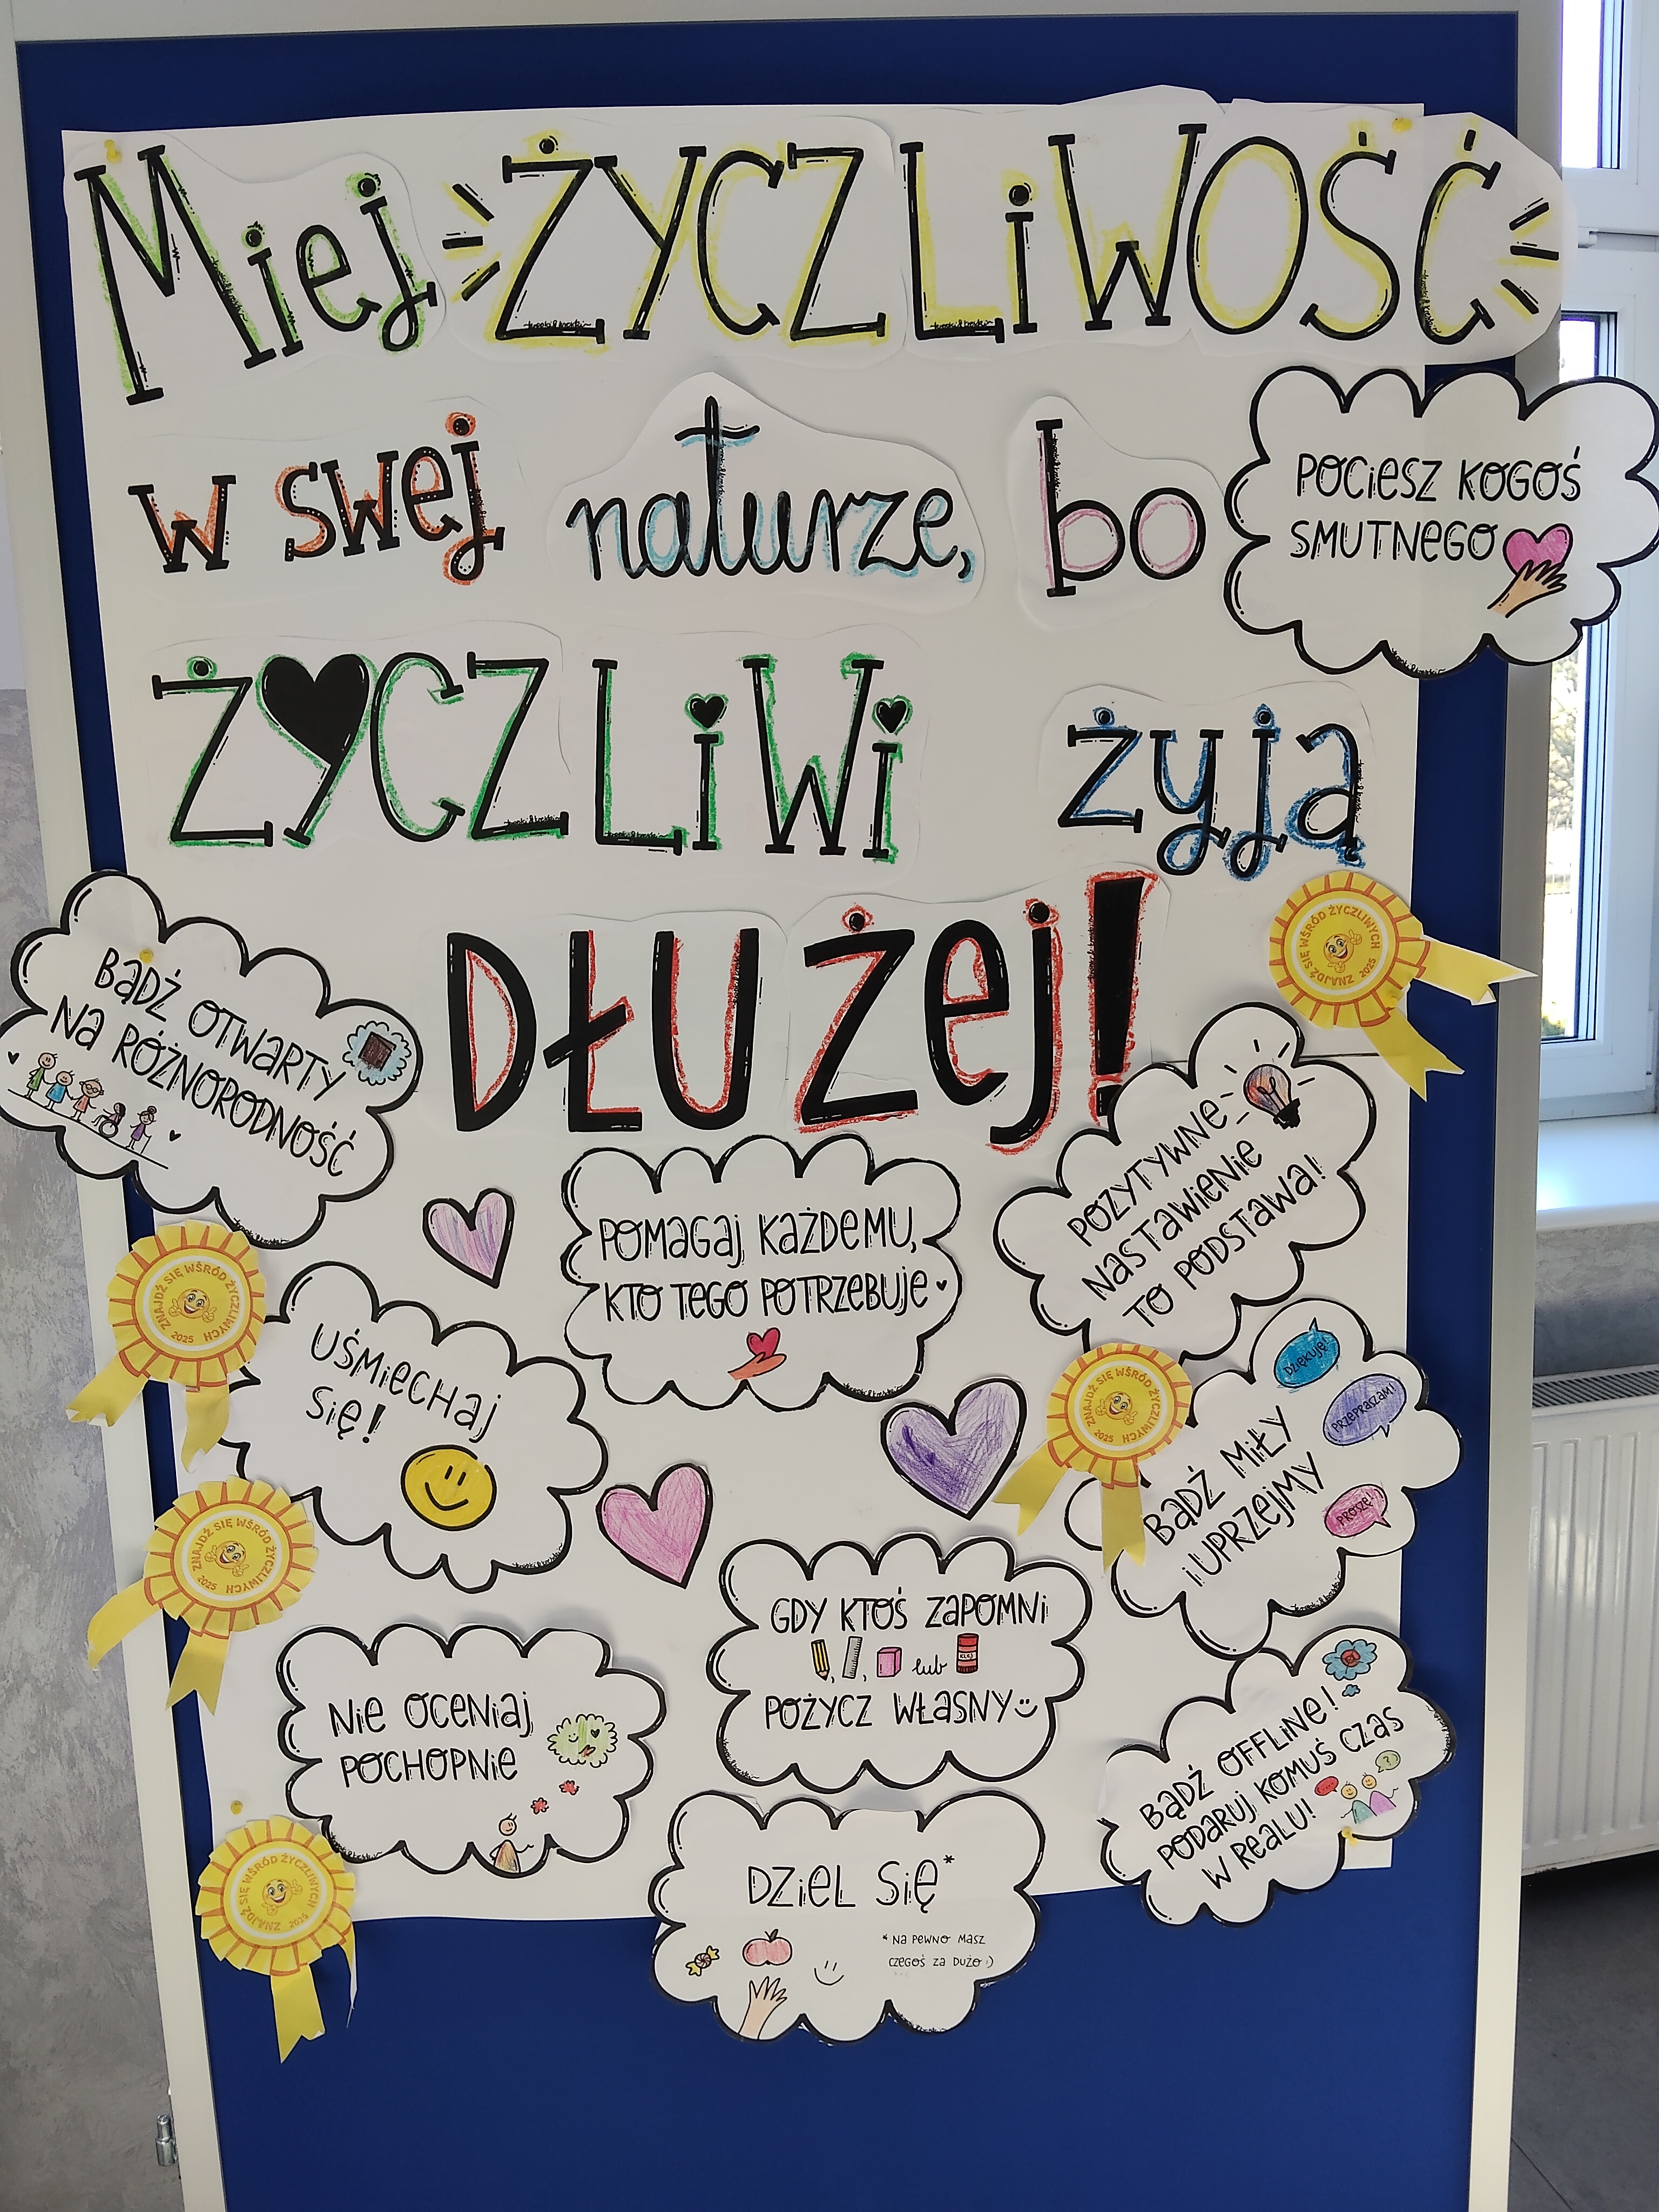 Miej ŻYCZLiWOŚĆ
w swej naturze, bo
POCiESZ KOGOŚ
SMUTNEGO
ŻYCZLiWi żyją
DŁUŻej!
BĄDŹ OTWARTY
NA RÓŻNORODNOŚĆ
ZNAJDŹ SIĘ WŚRÓD ŻYCZLIWYCH
2025
POZYTYWNE
NASTAWIENIE
TO PODSTAWA!
POMAGAJ KAŻDEMU,
KTO TEGO POTRZEBUJE
ZNAJDŹ SIĘ WŚRÓD ŻYCZLIWYCH
2025
UŚMIECHAJ
SIĘ!
ZNAJDŹ SIĘ WŚRÓD ŻYCZLIWYCH
2025
DZIĘKUJĘ!
PRZEPRASZAM!
PROSZĘ!
BĄDŹ MIŁY
i UPRZEJMY
ZNAJDŹ SIĘ WŚRÓD ŻYCZLIWYCH
2025
GDY KTOŚ ZAPOMNI
, , lub KLEJ
POŻYCZ WŁASNY
NIE OCENIAJ
POCHOPNIE
BĄDŹ OFFLINE!
PODARUJ KOMUŚ CZAS
W REALU!
?
ZNAJDŹ SIĘ WŚRÓD ŻYCZLIWYCH
2025
DZIEL SIĘ*
* NA PEWNO MASZ
CZEGOŚ ZA DUŻO :)